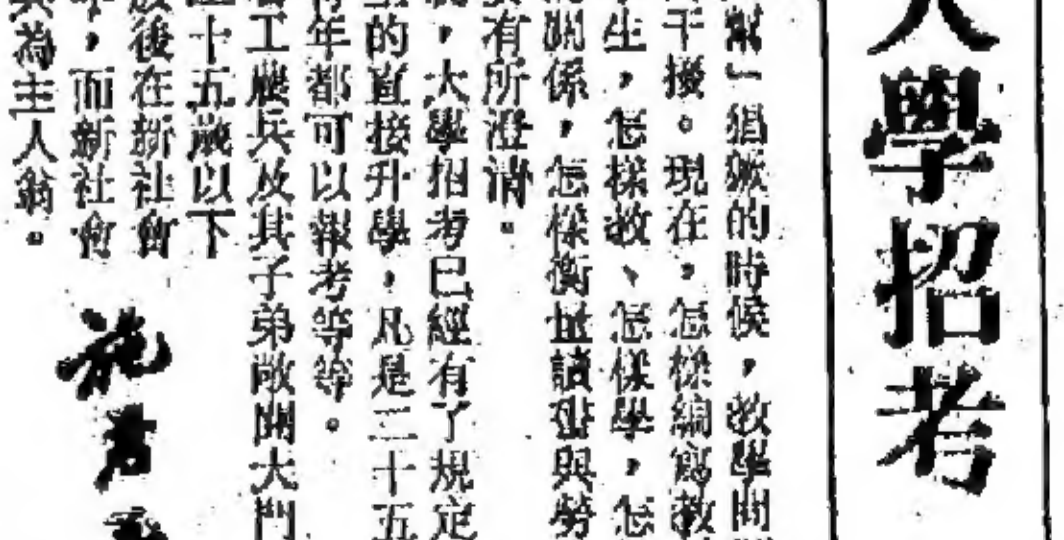 大學招考
幫」猖獗的時候，教學問
干擾。現在，怎樣編寫教
生，怎樣教、怎樣學，怎
關係，怎樣衡量讀書與勞
有所澄清。
，大學招考已經有了規定
的直接升學，凡是二十五
年都可以報考等等。
工農兵及其子弟敞開大門
十五歲以下
後在新社會
，而新社會
為主人翁。